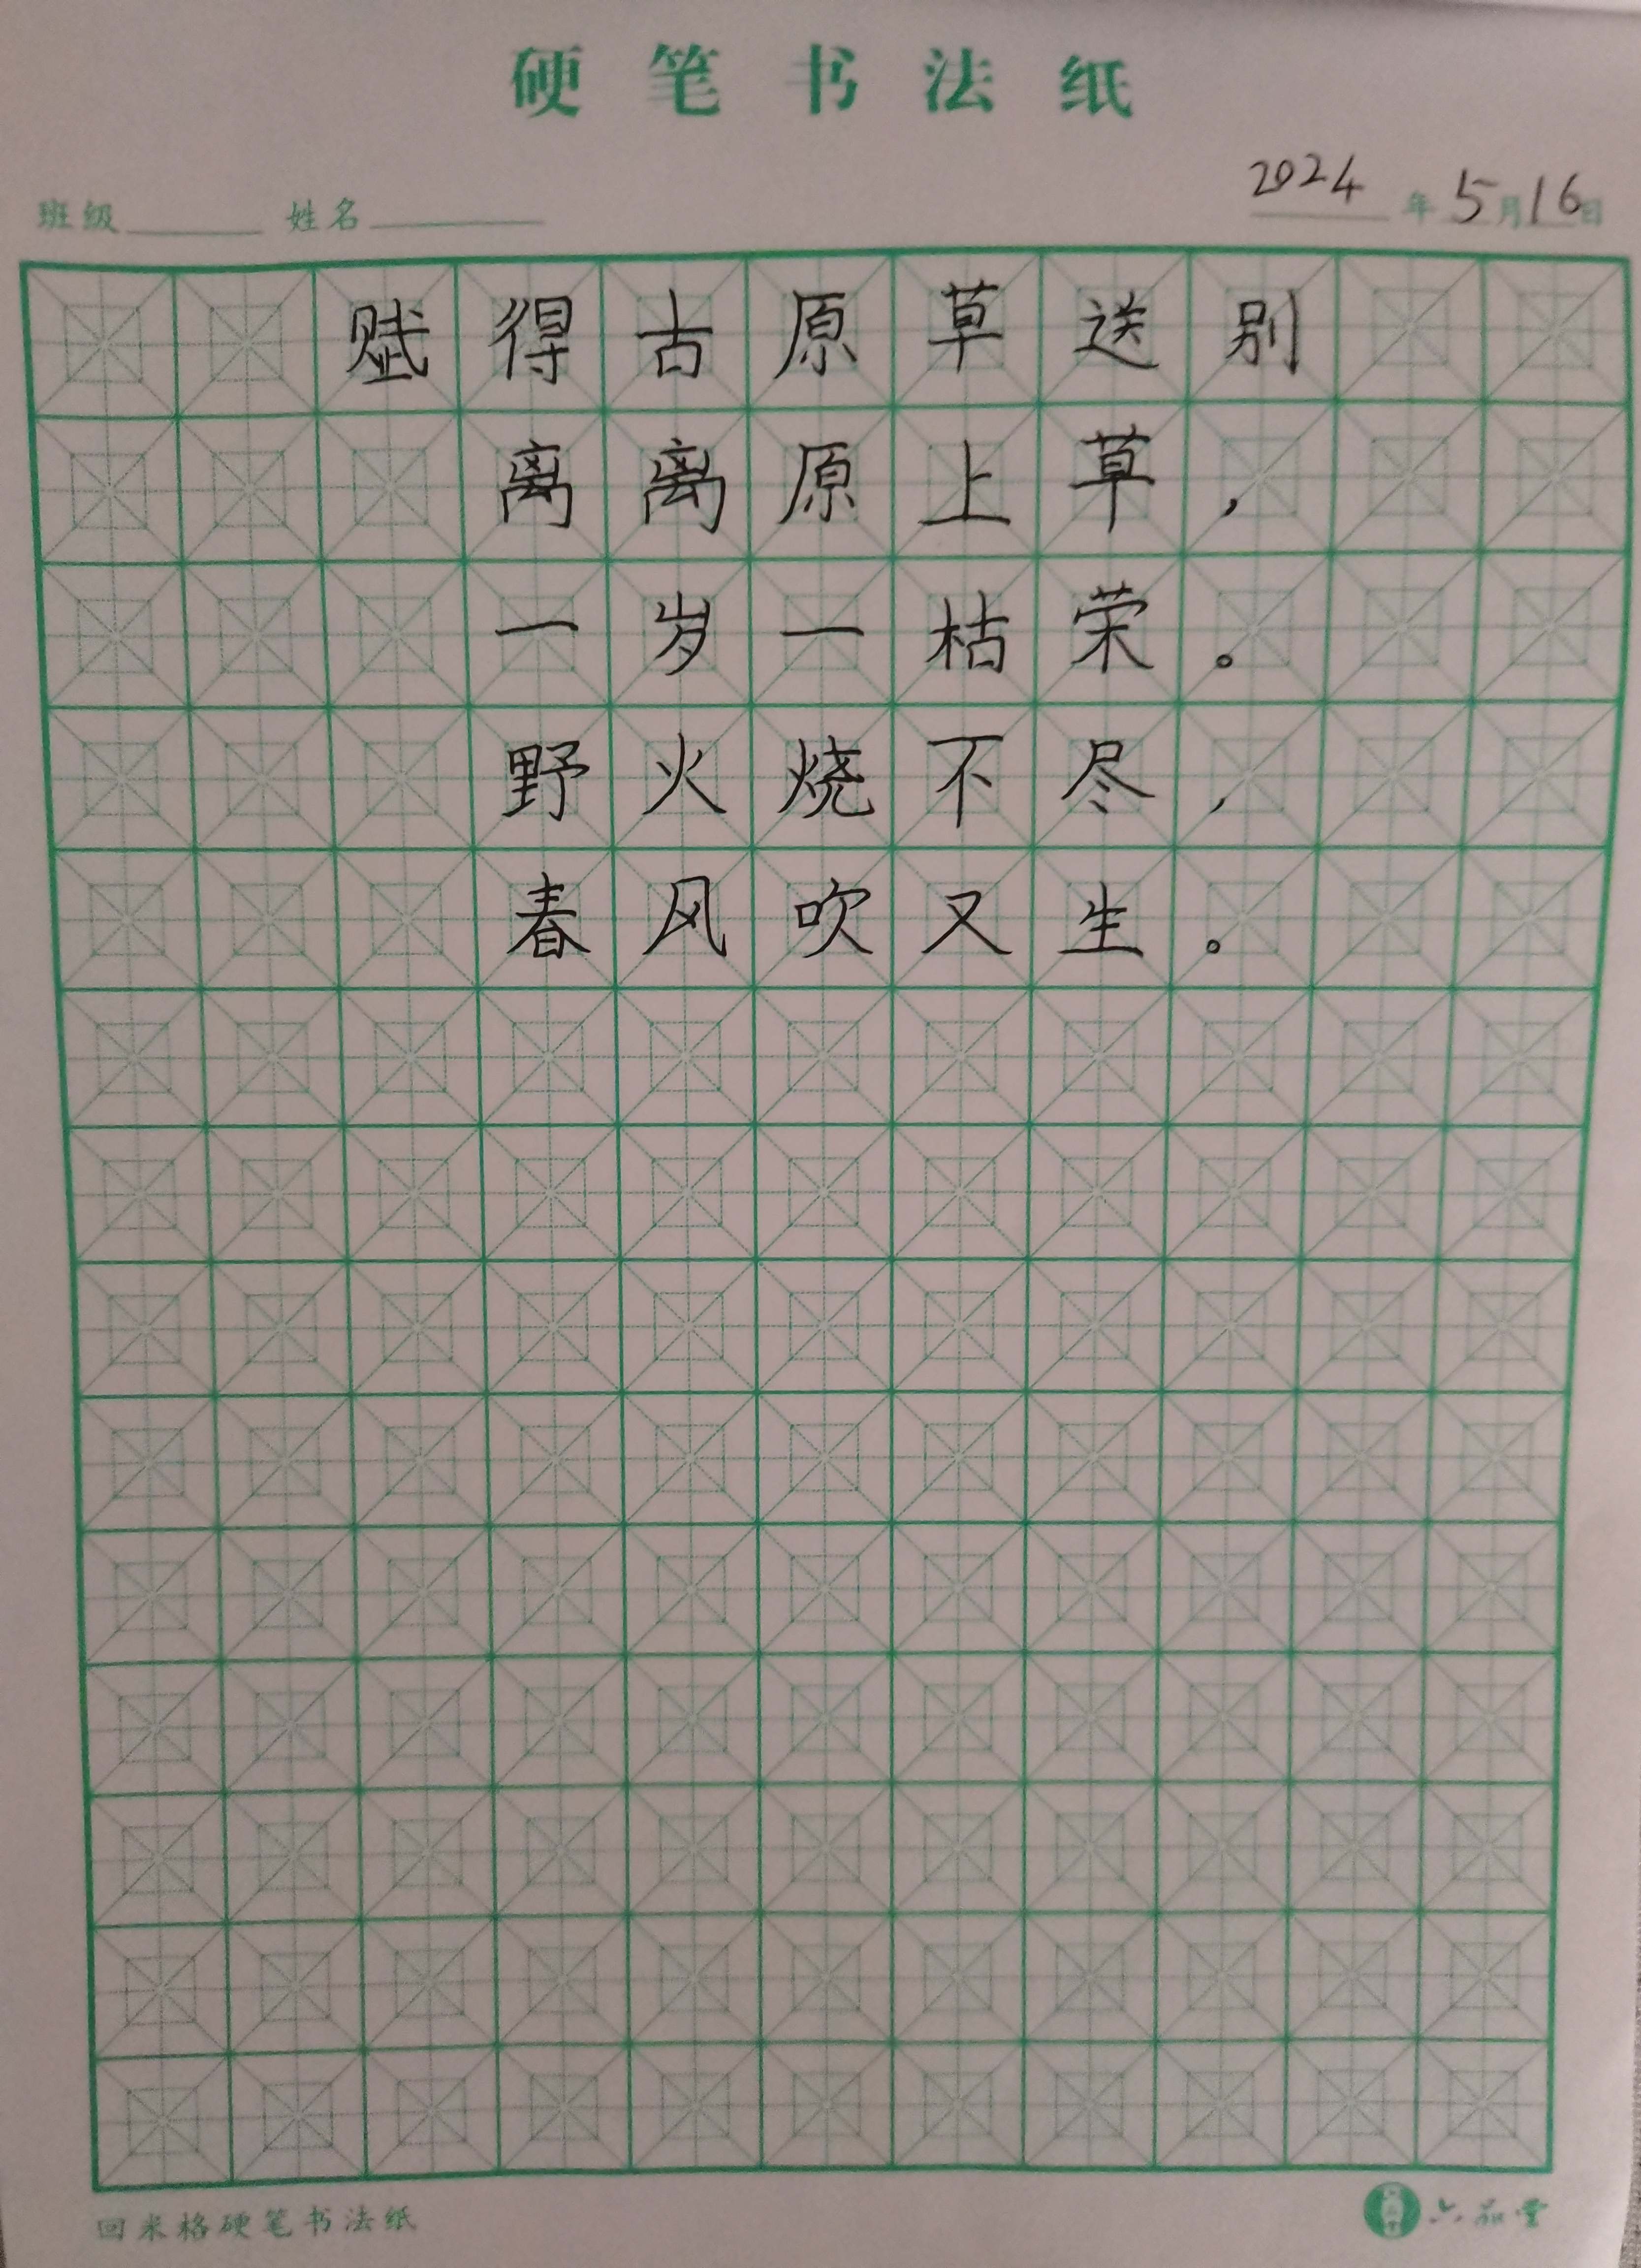 硬笔书法纸
班级 姓名 2024年5月16日
赋得古原草送别
离离原上草，
一岁一枯荣。
野火烧不尽，
春风吹又生。
回米格硬笔书法纸
六品堂